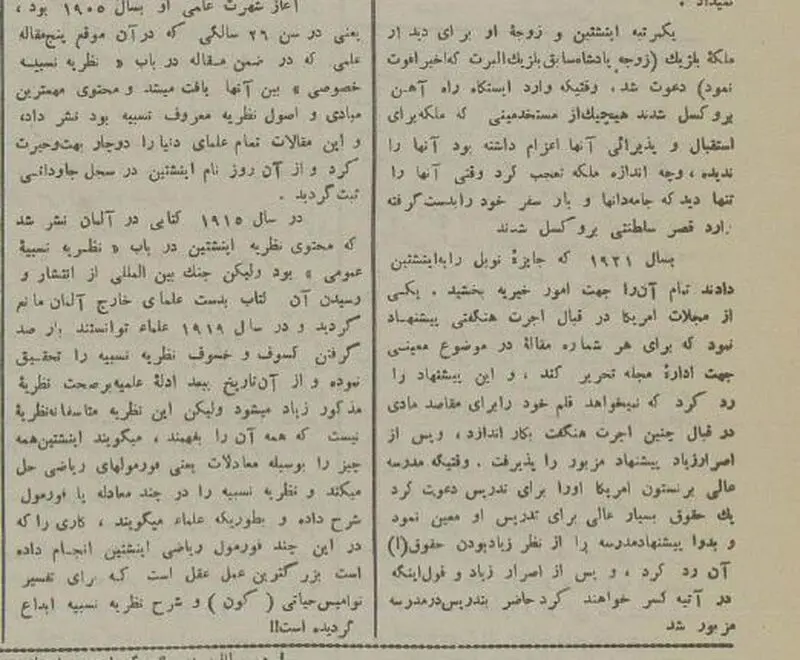 یکمرتبه اینشتین و زوجهٔ او برای دیدار
ملکهٔ بلژیك (زوجه پادشاه سابق بلژیك البرت که اخیرا فوت
نمود) دعوت شد، وقتیکه وارد ایستگاه راه آهن
بروکسل شدند هیچیك از مستخدمینی که ملکه برای
استقبال و پذیرائی آنها اعزام داشته بود آنها را
ندیده، وچه اندازه ملکه تعجب کرد وقتی آنها را
تنها دید که جامه‌دانها و بار سفر خود را بدست گرفته
وارد قصر سلطنتی بروکسل شدند
بسال ۱۹۲۱ که جایزهٔ نوبل را به اینشتین
دادند تمام آن‌را جهت امور خیریه بخشید . یکی
از مجلات امریکا در قبال اجرت هنگفتی پیشنهاد
نمود که برای هر شماره مقالهٔ در موضوع معینی
جهت ادارهٔ مجله تحریر کند ، و این پیشنهاد را
رد کرد که نمیخواهد قلم خود را برای مقاصد مادی
در قبال چنین اجرت هنگفت بکار اندازد ، وپس از
اصرار زیاد پیشنهاد مزبور را پذیرفت . وقتیکه مدرسه
عالی برنستون امریکا اورا برای تدریس دعوت کرد
یك حقوق بسیار عالی برای تدریس او معین نمود
و بدوا پیشنهاد مدرسه را از نظر زیاد بودن حقوق(!)
آن رد کرد ، و پس از اصرار زیاد و قول اینکه
در آتیه کسر خواهند کرد حاضر بتدریس در مدرسه
مزبور شد
آغاز شهرت علمی او بسال ۱۹۰۵ بود ،
یعنی در سن ۲۶ سالگی که در آن موقع پنج مقاله
علمی که در ضمن مقاله در باب « نظریه نسبیه
خصوصی » بین آنها یافت میشد و محتوی مهمترین
مبادی و اصول نظریه معروف نسبیه بود نشر داد،
و این مقالات تمام علمای دنیا را دوچار بهت وحیرت
کرد و از آن روز نام اینشتین در سجل جاودانی
ثبت گردید .
در سال ۱۹۱۵ کتابی در آلمان نشر شد
که محتوی نظریه اینشتین در باب « نظریه نسبیهٔ
عمومی » بود ولیکن جنك بین المللی از انتشار و
رسیدن آن کتاب بدست علمای خارج آلمان مانع
گردید و در سال ۱۹۱۹ علماء توانستند بارصد
گرفتن کسوف و خسوف نظریه نسبیه را تحقیق
نموده و از آن تاریخ ببعد ادلهٔ علمیه برصحت نظریهٔ
مذکور زیاد میشود ولیکن این نظریه متاسفانه نظریهٔ
نیست که همه آن را بفهمند ، میگویند اینشتین همه
چیز را بوسیله معادلات یعنی فورمولهای ریاضی حل
میکند و نظریه نسبیه را در چند معادله یا فورمول
شرح داده و بطوریکه علماء میگویند ، کاری را که
در این چند فورمول ریاضی اینشتین انجام داده
است بزرگترین عمل عقل است که برای تفسیر
نوامیس حیاتی ( کون ) و شرح نظریه نسبیه ابداع
گردیده است!!